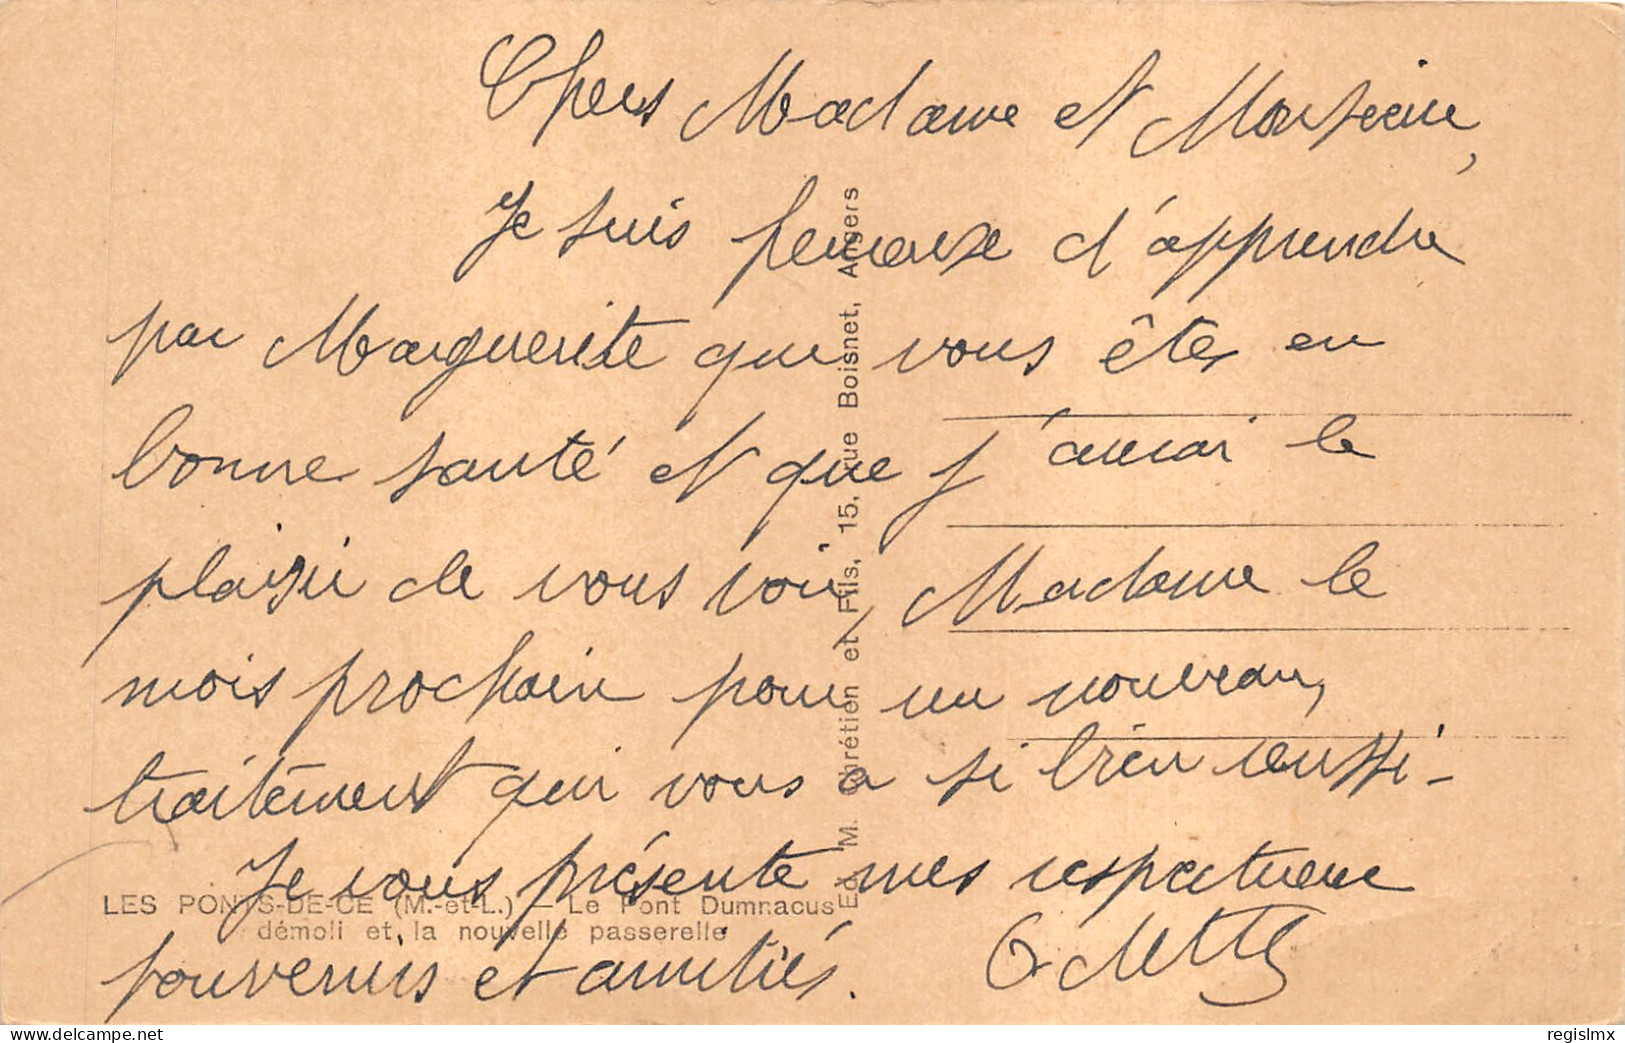 Chers Madame et Monsieur,
Je suis heureuse d'apprendre
par Marguerite que vous êtes en
bonne santé et que j'aurai le
plaisir de vous voir, Madame le
mois prochain pour un nouveau,
traitement qui vous a si bien reussi-
Je vous présente mes respectueux
souvenirs et amitiés.
Odette
LES PONTS-DE-CÉ (M.-et-L.) - Le Pont Dumnacus
démoli et la nouvelle passerelle
Ed. M. Chrétien et Fils, 15, rue Boisnet, Angers
www.delcampe.net
regislmx